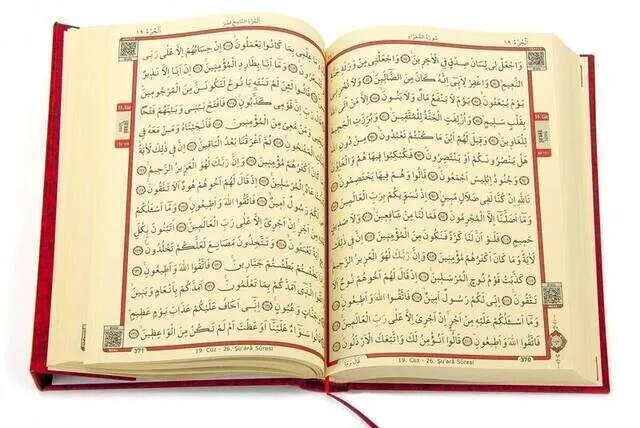 اَلْجُزْءُ ١٩
سُورَةُ الشُّعَرَاءِ
وَاجْعَلْ لِى لِسَانَ صِدْقٍ فِى الْاٰخِرِينَ وَاجْعَلْنِى مِنْ وَرَثَةِ جَنَّةِ
النَّعِيمِ وَاغْفِرْ لِاَبِى اِنَّهُ كَانَ مِنَ الضَّالِّينَ وَلَا تُخْزِنِى
يَوْمَ يُبْعَثُونَ يَوْمَ لَا يَنْفَعُ مَالٌ وَلَا بَنُونَ اِلَّا مَنْ اَتَى اللّٰهَ
بِقَلْبٍ سَلِيمٍ وَاُزْلِفَتِ الْجَنَّةُ لِلْمُتَّقِينَ وَبُرِّزَتِ الْجَحِيمُ
لِلْغَاوِينَ وَقِيلَ لَهُمْ اَيْنَ مَا كُنْتُمْ تَعْبُدُونَ مِنْ دُونِ
اللّٰهِ هَلْ يَنْصُرُونَكُمْ اَوْ يَنْتَصِرُونَ فَكُبْكِبُوا فِيهَا هُمْ وَالْغَاوُنَ
وَجُنُودُ اِبْلِيسَ اَجْمَعُونَ قَالُوا وَهُمْ فِيهَا يَخْتَصِمُونَ
تَاللّٰهِ اِنْ كُنَّا لَفِى ضَلَالٍ مُبِينٍ اِذْ نُسَوِّيكُمْ بِرَبِّ الْعَالَمِينَ
وَمَا اَضَلَّنَا اِلَّا الْمُجْرِمُونَ فَمَا لَنَا مِنْ شَافِعِينَ وَلَا صَدِيقٍ
حَمِيمٍ فَلَوْ اَنَّ لَنَا كَرَّةً فَنَكُونَ مِنَ الْمُؤْمِنِينَ اِنَّ فِى ذٰلِكَ
لَاٰيَةً وَمَا كَانَ اَكْثَرُهُمْ مُؤْمِنِينَ وَاِنَّ رَبَّكَ لَهُوَ الْعَزِيزُ الرَّحِيمُ
كَذَّبَتْ قَوْمُ نُوحٍ الْمُرْسَلِينَ اِذْ قَالَ لَهُمْ اَخُوهُمْ نُوحٌ اَلَا
تَتَّقُونَ اِنِّى لَكُمْ رَسُولٌ اَمِينٌ فَاتَّقُوا اللّٰهَ وَاَطِيعُونِ
وَمَا اَسْـَٔلُكُمْ عَلَيْهِ مِنْ اَجْرٍ اِنْ اَجْرِىَ اِلَّا عَلٰى رَبِّ الْعَالَمِينَ
فَاتَّقُوا اللّٰهَ وَاَطِيعُونِ قَالُوا اَنُؤْمِنُ لَكَ وَاتَّبَعَكَ الْاَرْذَلُونَ
19. Cüz - 26. Şu'arâ Sûresi
370
اَلْجُزْءُ التَّاسِعَ عَشَرَ
اَلْجُزْءُ ١٩
وَمَا عِلْمِى بِمَا كَانُوا يَعْمَلُونَ اِنْ حِسَابُهُمْ اِلَّا عَلٰى رَبِّى
تَشْعُرُونَ وَمَا اَنَا بِطَارِدِ الْمُؤْمِنِينَ اِنْ اَنَا اِلَّا نَذِيرٌ
قَالُوا لَئِنْ لَمْ تَنْتَهِ يَا نُوحُ لَتَكُونَنَّ مِنَ الْمَرْجُومِينَ
اِنَّ قَوْمِى كَذَّبُونِ فَافْتَحْ بَيْنِى وَبَيْنَهُمْ فَتْحًا
وَمَنْ مَعِىَ مِنَ الْمُؤْمِنِينَ فَاَنْجَيْنَاهُ وَمَنْ مَعَهُ فِى
ثُمَّ اَغْرَقْنَا بَعْدُ الْبَاقِينَ اِنَّ فِى ذٰلِكَ لَاٰيَةً
كَانَ اَكْثَرُهُمْ مُؤْمِنِينَ وَاِنَّ رَبَّكَ لَهُوَ الْعَزِيزُ الرَّحِيمُ
عَادٌ الْمُرْسَلِينَ اِذْ قَالَ لَهُمْ اَخُوهُمْ هُودٌ اَلَا تَتَّقُونَ
لَكُمْ رَسُولٌ اَمِينٌ فَاتَّقُوا اللّٰهَ وَاَطِيعُونِ وَمَا اَسْـَٔلُكُمْ
مِنْ اَجْرٍ اِنْ اَجْرِىَ اِلَّا عَلٰى رَبِّ الْعَالَمِينَ اَتَبْنُونَ بِكُلِّ
تَعْبَثُونَ وَتَتَّخِذُونَ مَصَانِعَ لَعَلَّكُمْ تَخْلُدُونَ
بَطَشْتُمْ بَطَشْتُمْ جَبَّارِينَ فَاتَّقُوا اللّٰهَ وَاَطِيعُونِ
اَمَدَّكُمْ بِمَا تَعْلَمُونَ اَمَدَّكُمْ بِاَنْعَامٍ وَبَنِينَ
وَعُيُونٍ اِنِّى اَخَافُ عَلَيْكُمْ عَذَابَ يَوْمٍ عَظِيمٍ
قَالُوا سَوَاءٌ عَلَيْنَا اَوَعَظْتَ اَمْ لَمْ تَكُنْ مِنَ الْوَاعِظِينَ
371
19. Cüz - 26. Şu'arâ Sûresi